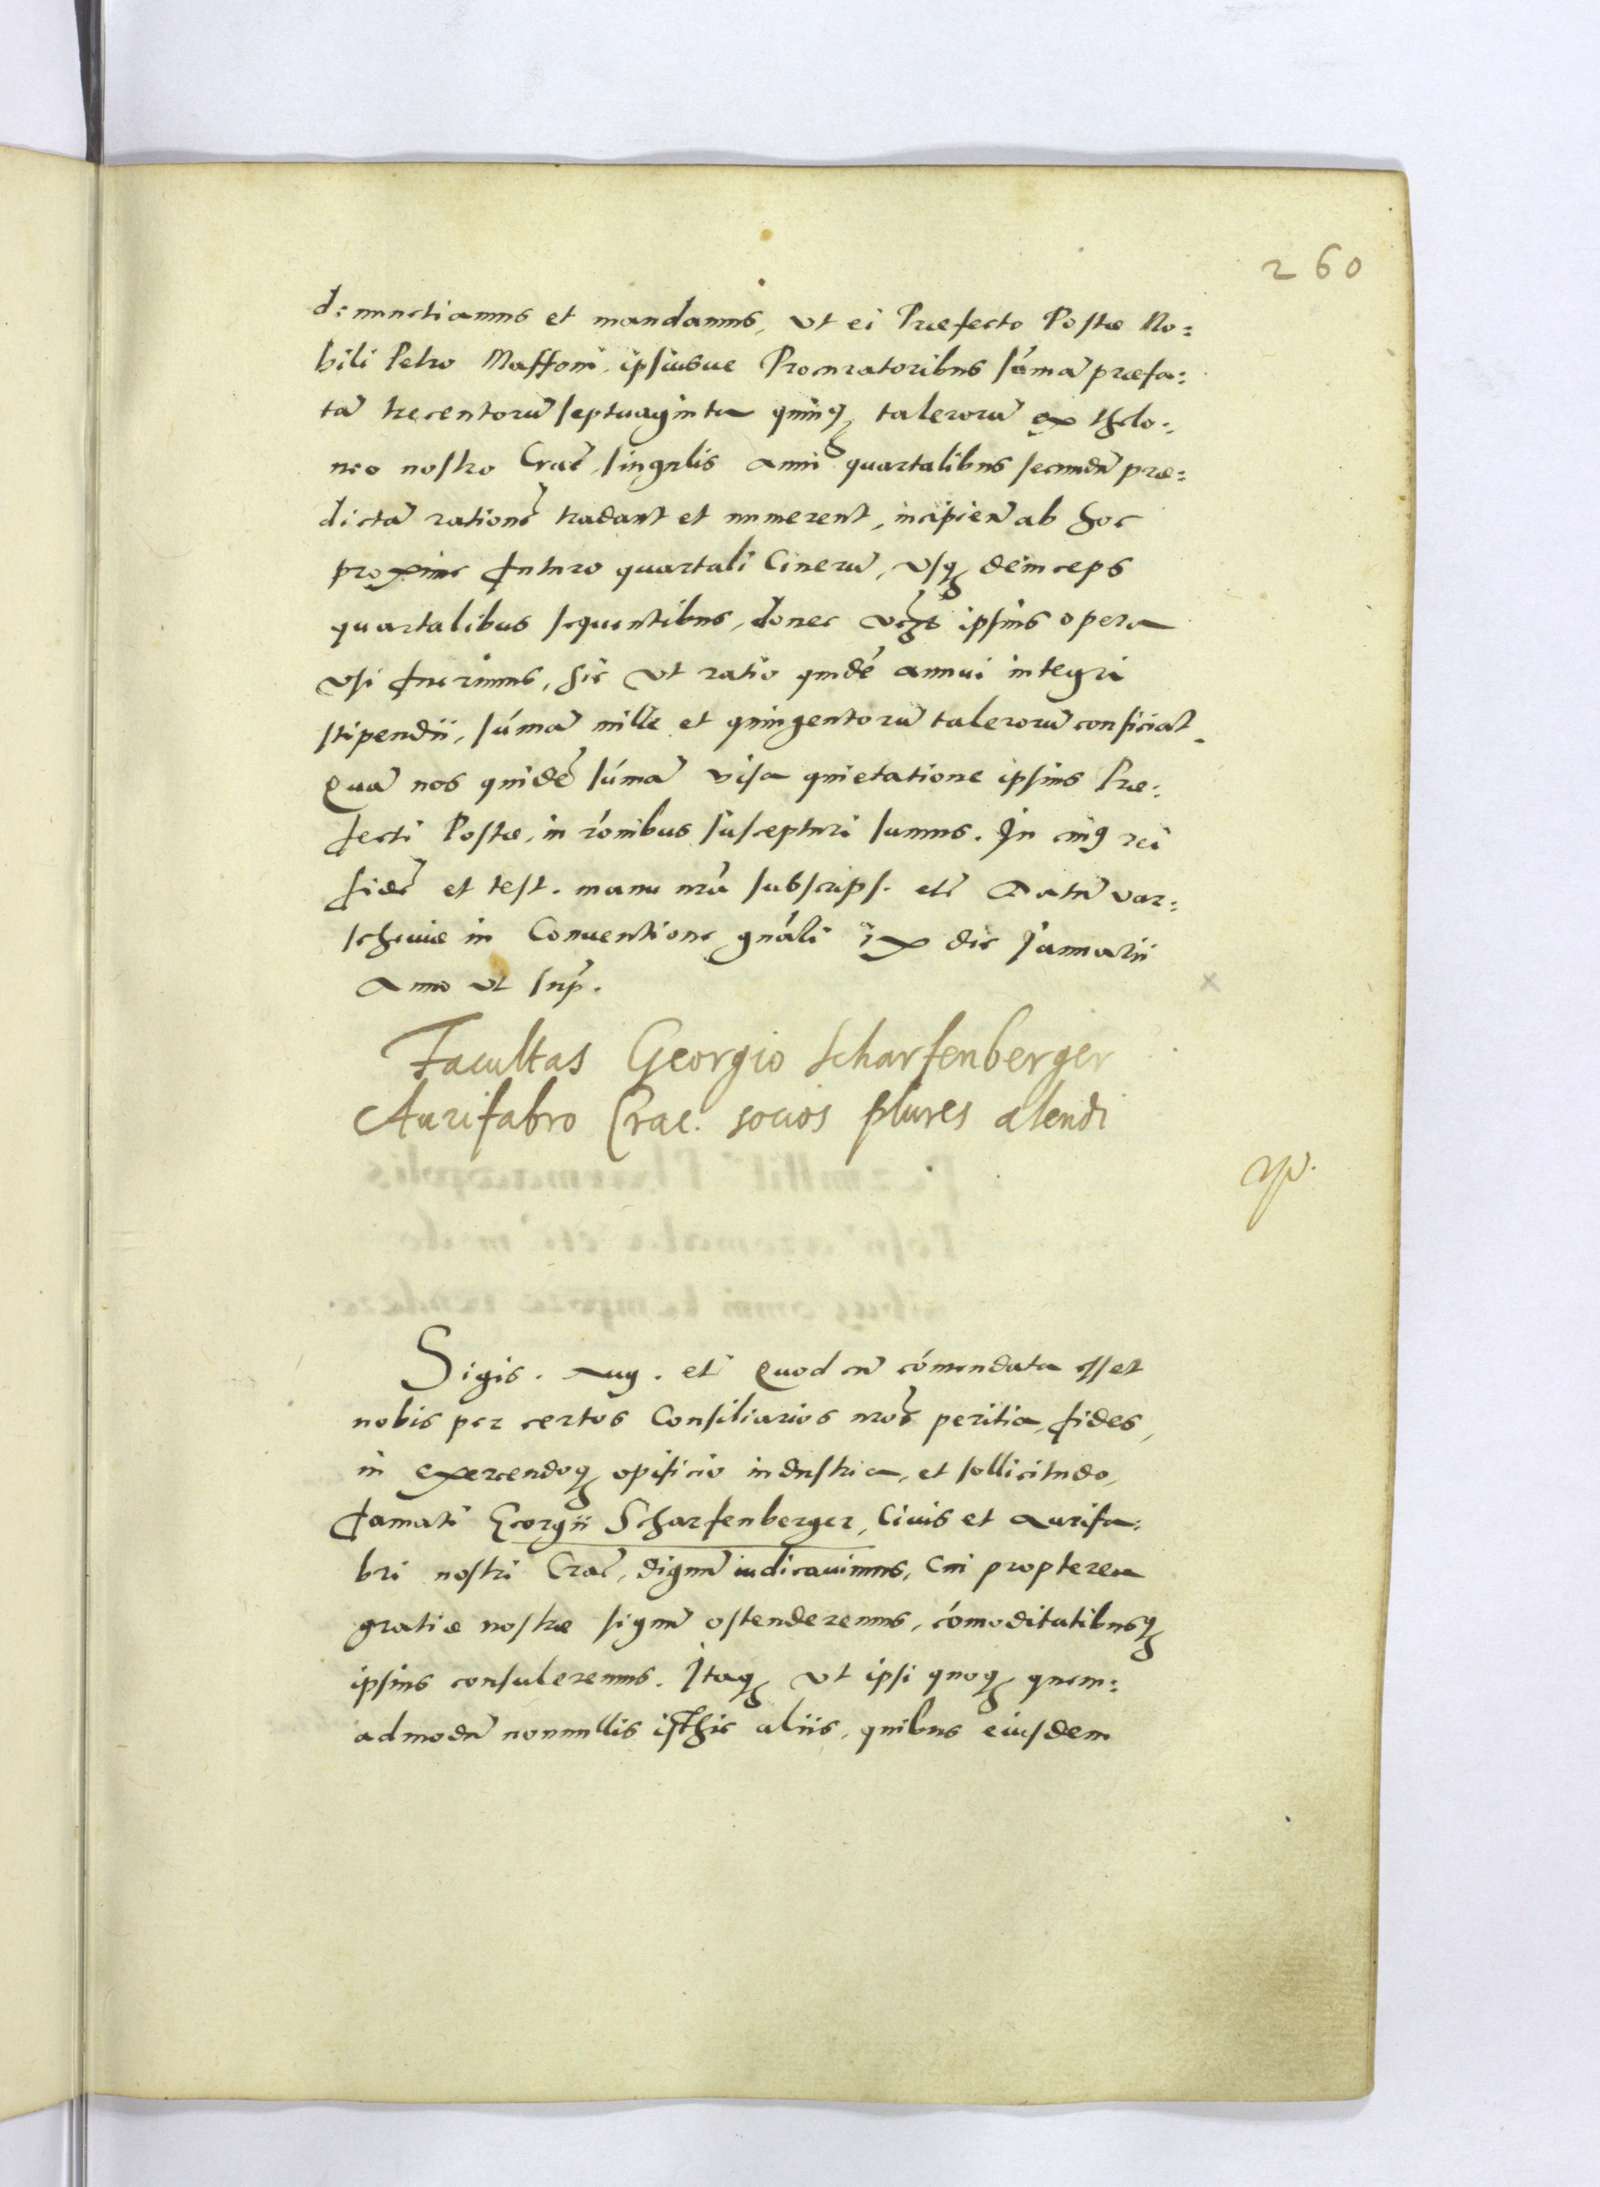 260
denunctiamus et mandamus, vt ei Præfecto Postæ No:
bili Petro Maffoni, ipsiusue Procuratoribus súmã præfa:
tã trecentorũ septuaginta quinq₃ talerorũ ex thelo:
neo nostro Crac̃, singulis anni quartalibus secundũ præ:
dictã rationẽ tradant et numerent, incipien̄ ab hoc
proxime futuro quartali Cinerũ, vsq₃ deinceps
quartalibus sequentibus, donec ipsius opera
vsi fuerimus, sic vt ratio quidẽ annui integri
stipendii, súmã mille et quingentorũ talerorũ conficiat.
Quã nos quidẽ súmã visa quietatione ipsius Præ:
fecti Postæ, in rõnibus suscepturi sumus. In cuiꝰ rei
fidẽ et test. manu nrã subscrips. etc̃ Datũ Var:
schauiæ in Conuentione gnáli ix die Januarii
Anno vt sup̃.
Facultas Georgio Scharfenberger
Aurifabro Crac. socios plures alendi
Sigis. Aug. etc̃ Quod cũ cómendata esset
nobis per certos Consiliarios nrõs peritia, fides,
in exercendoq₃ opificio industria, et sollicitudo,
famati Georgii Scharfenberger, Ciuis et Aurifa:
bri nostri Crac̃, dignũ iudicauimus, Cui propterea
gratiæ nostræ signũ ostenderemus, cómoditatibusq₃
ipsius consuleremus. Itaq₃ vt ipsi quoq₃ quem:
admodũ nonnullis isthic aliis, quibus eiusdem